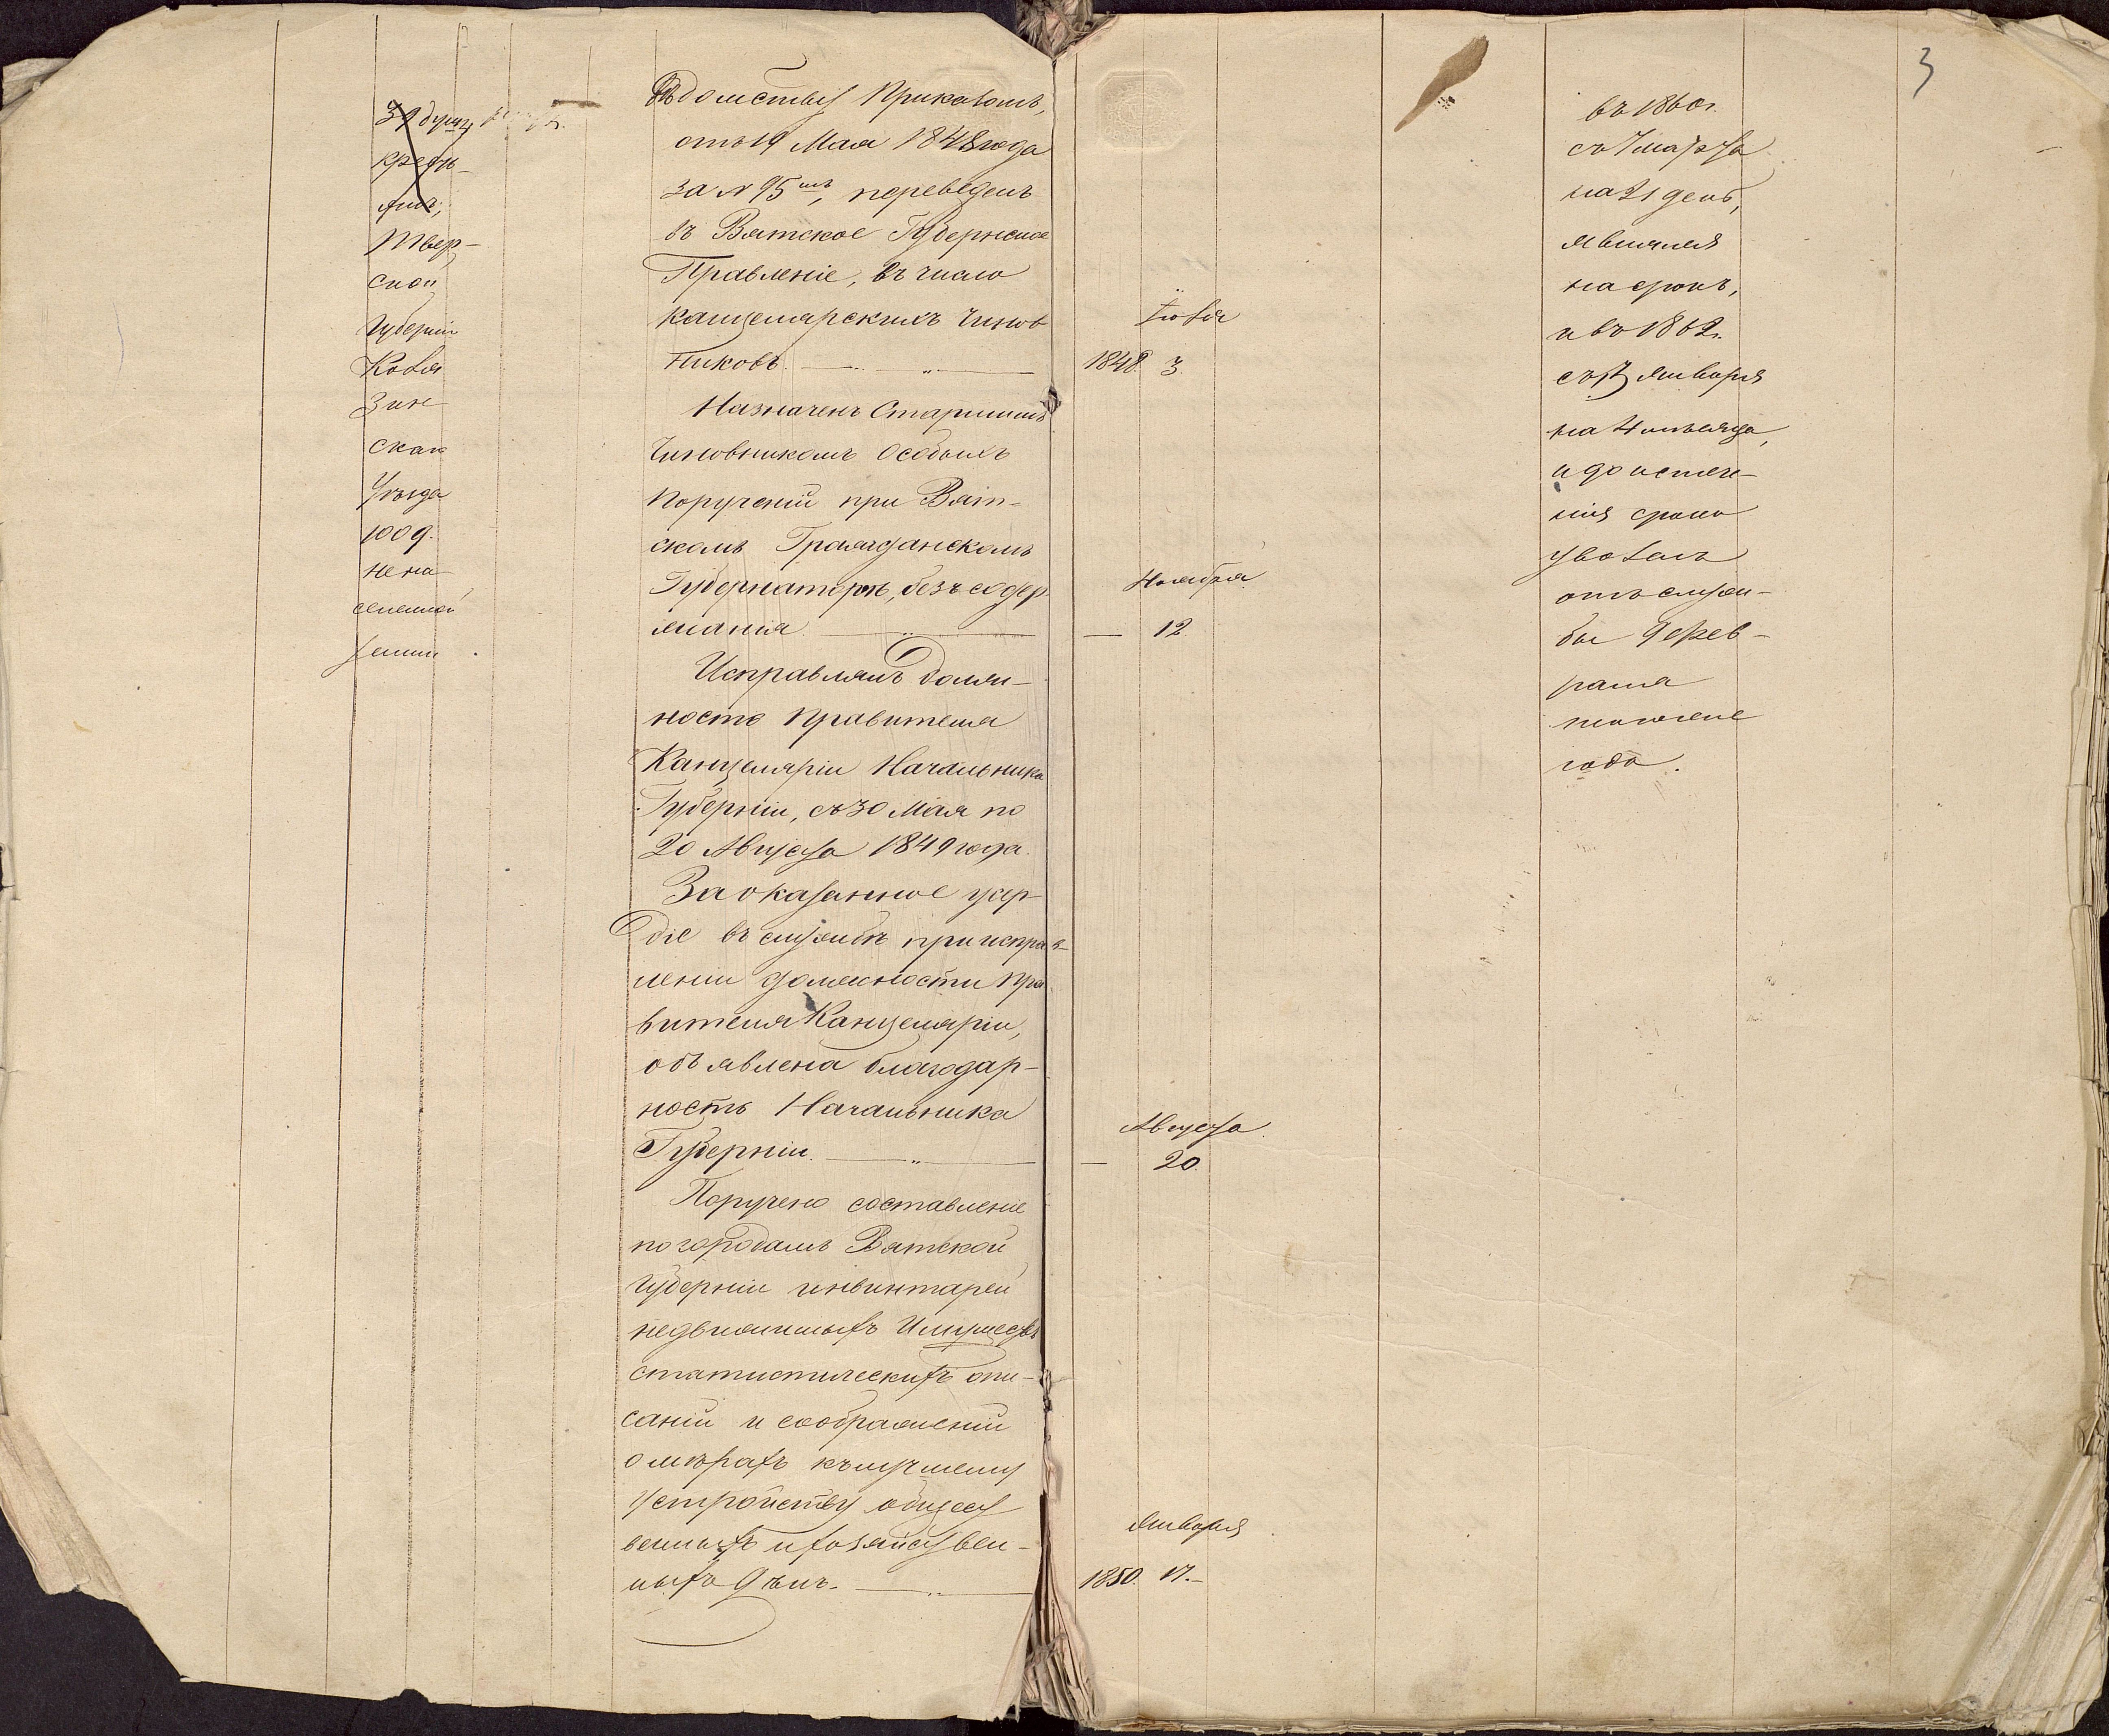 3
душъ
кресть-
янъ,
Твер-
ской
Губерніи
Коля
зин
скаго
Уѣзда
100 д.
нена
селенной
земли.
Вѣдомству Приказомъ,
отъ 19 Мая 1848 года
за № 95мъ, переведенъ
въ Вятское Губернское
Правленіе, въ число
канцелярскихъ Чинов
никовъ. — „ —
Іюля
1848. 3.
Назначенъ Старшимъ
Чиновникомъ Особыхъ
порученій при Вят-
скомъ Гражданскомъ
Губернаторѣ, безъ содер
жанія. — „ —
Ноября
— 12.
Исправлялъ долж-
ность Правителя
Канцеляріи Начальника
Губерніи, съ 30 Мая по
20 Августа 1849 года.
За оказанное усер-
діе въ службѣ при исправ-
леніи должности Пра
вителя Канцеляріи,
объявлена благодар-
ность Начальника
Губерніи. — „ —
Августа
— 20.
Поручено составленіе
по городамъ Вятской
Губерніи инвинтарей
недвижимыхъ Имуществъ
статистическихъ опи-
саній и соображеній
о мѣрахъ къ лучшему
устройству общест
венныхъ и хозяйствен-
ныхъ дѣлъ. — „ —
Января
1850. 17.-
въ 1860г.
съ 7 марта
на 21 день,
явился
на срокъ,
и въ 1862г.
января
на 4 мѣсяца,
и до истече-
нія срока
уволенъ
отъ служ-
бы 9 Фев-
раля
того же
года.